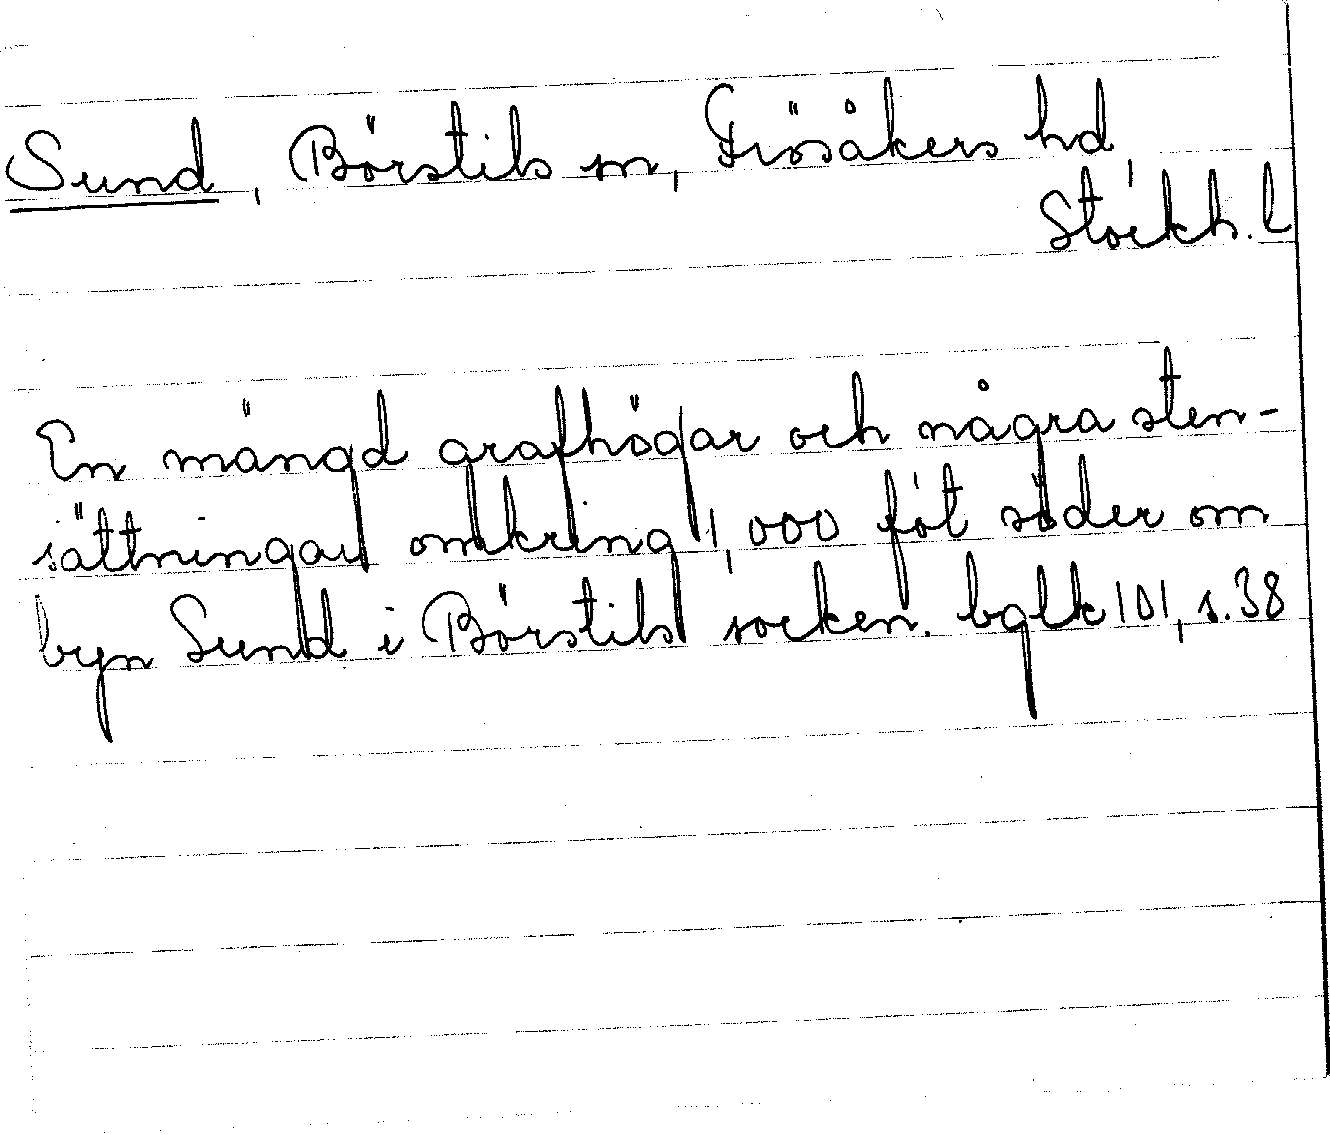 Sund, Börstils sn, Frösåkers hd,
Stockh. l
En mängd grafhögar och några sten-
sättningar omkring 1,000 fot söder om
byn Sund i Börstils socken. bglk 101, s. 38